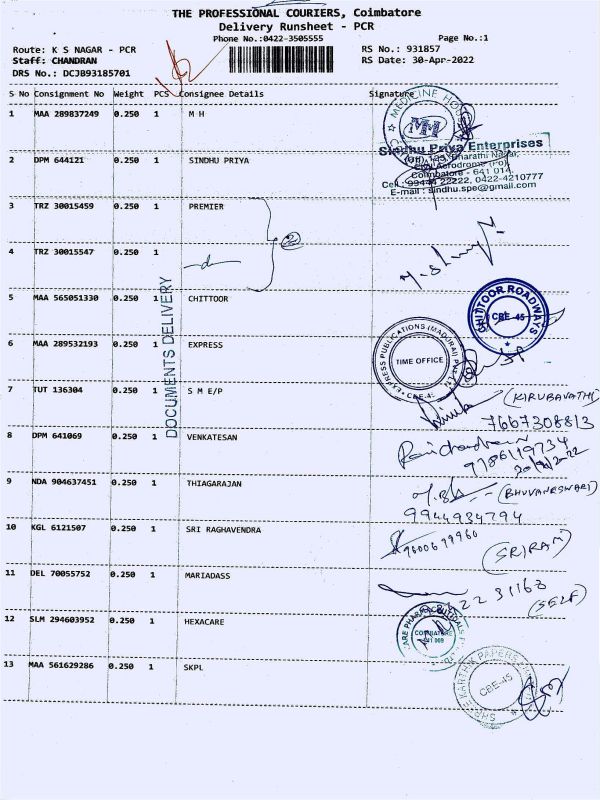 THE PROFESSIONAL COURIERS, Coimbatore
Delivery Runsheet - PCR
Phone No.:0422-3505555 Page No.:1
Route: K S NAGAR - PCR RS No.: 931857
Staff: CHANDRAN RS Date: 30-Apr-2022
DRS No.: DCJB93185701
S No Consignment No Weight PCS Consignee Details Signature
1 MAA 289837249 0.250 1 M H
MEDICINE HOUSE
2 DPM 644121 0.250 1 SINDHU PRIYA
Sindhu Priya Enterprises
Coimbatore - 641 014.
Cell : 99444 22222, 0422-4210777
E-mail : sindhu.spe@gmail.com
3 TRZ 30015459 0.250 1 PREMIER
2
4 TRZ 30015547 0.250 1
DOCUMENTS DELIVERY
5 MAA 565051330 0.250 1 CHITTOOR
CHITTOOR ROADWAYS
CBE-45
6 MAA 289532193 0.250 1 EXPRESS
EXPRESS PUBLICATIONS (MADURAI) PVT. LTD
TIME OFFICE
CBE-4
7 TUT 136304 0.250 1 S M E/P
(KIRUBAVATHI)
7667308813
8 DPM 641069 0.250 1 VENKATESAN
Ravichandran
9786119734
9 NDA 904637451 0.250 1 THIAGARAJAN
(BHUVANESWARI)
9944934794
10 KGL 6121507 0.250 1 SRI RAGHAVENDRA
9600679960
(SRIRAM)
11 DEL 70055752 0.250 1 MARIADASS
(SELF)
12 SLM 294603952 0.250 1 HEXACARE
COIMBATORE
13 MAA 561629286 0.250 1 SKPL
CBE-45